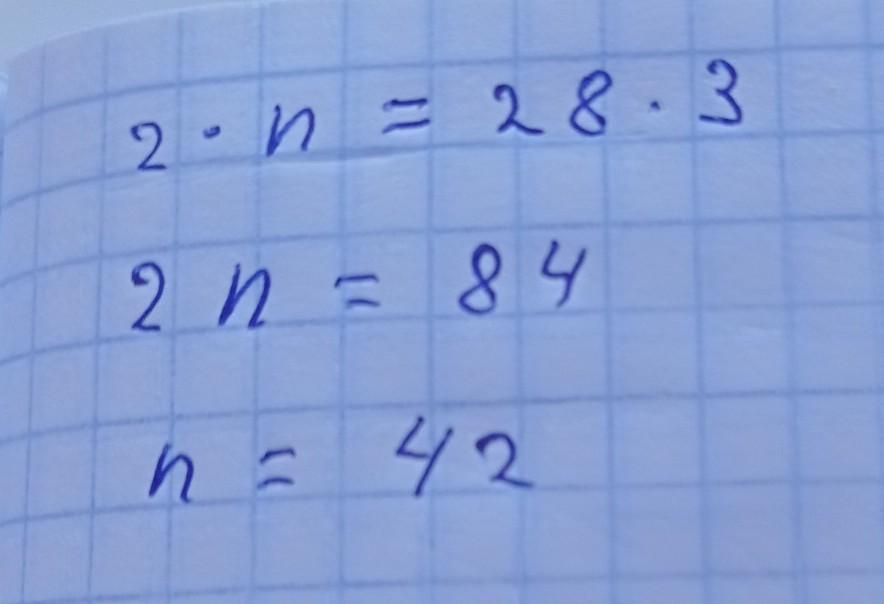 2 · n = 28 · 3
2n = 84
n = 42